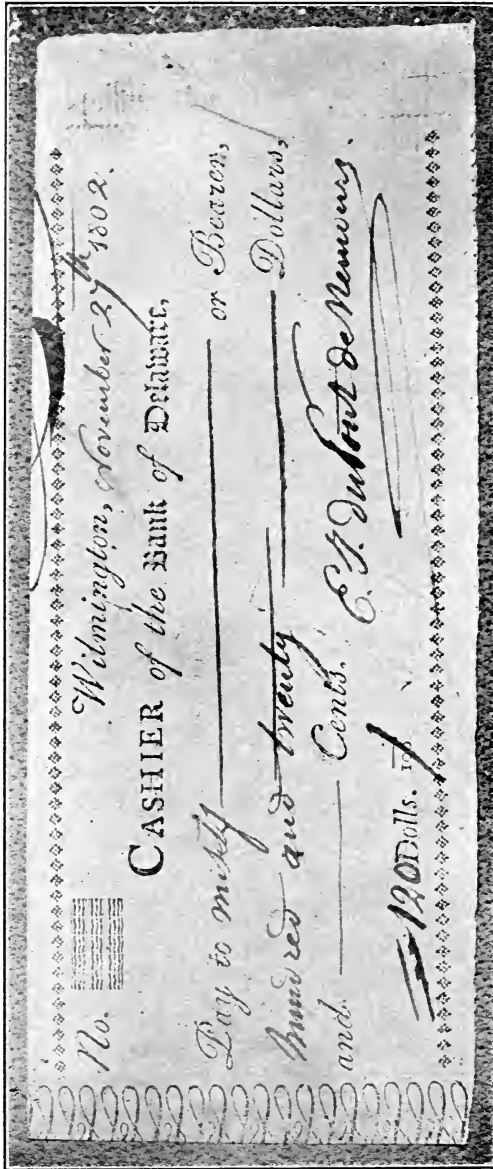 No. Wilmington, November 27th 1802.
CASHIER of the Bank of Delaware,
Pay to myself or Bearer,
hundred and twenty Dollars,
and Cents. E. I. DuPont de Nemours.
120 Dolls. 100